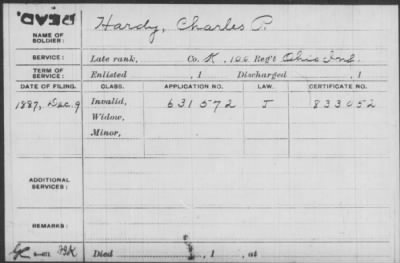 DEAD.
NAME OF SOLDIER: Hardy, Charles P.
SERVICE: Late rank, Co. K, 106 Reg't Ohio Inf.
TERM OF SERVICE: Enlisted , 1 Discharged , 1
DATE OF FILING. CLASS. APPLICATION NO. LAW. CERTIFICATE NO.
1887, Dec. 9 Invalid, 631572 J 833052
Widow,
Minor,
ADDITIONAL SERVICES:
REMARKS:
Died , 1 , at